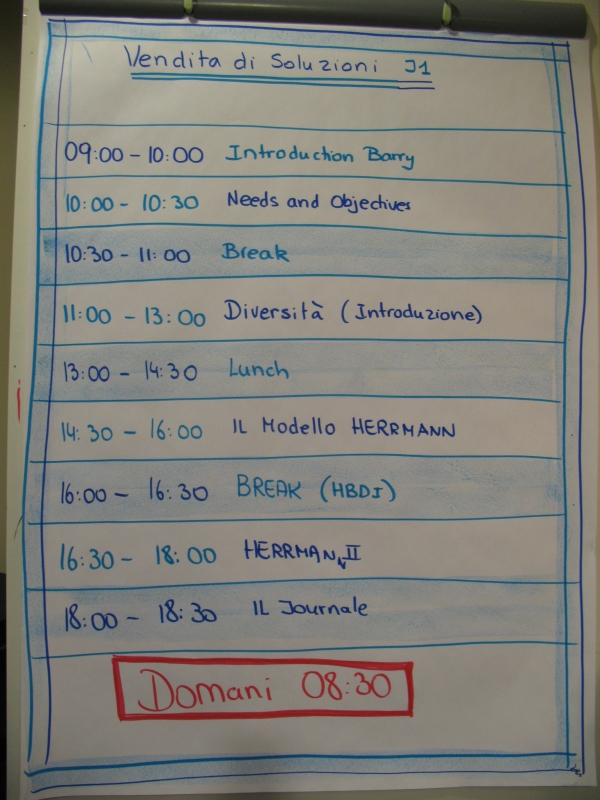 Vendita di Soluzioni J1
09:00 - 10:00 Introduction Barry
10:00 - 10:30 Needs and Objectives
10:30 - 11:00 Break
11:00 - 13:00 Diversità (Introduzione)
13:00 - 14:30 Lunch
14:30 - 16:00 IL Modello HERRMANN
16:00 - 16:30 BREAK (HBDI)
16:30 - 18:00 HERRMAN II
18:00 - 18:30 IL Journale
Domani 08:30